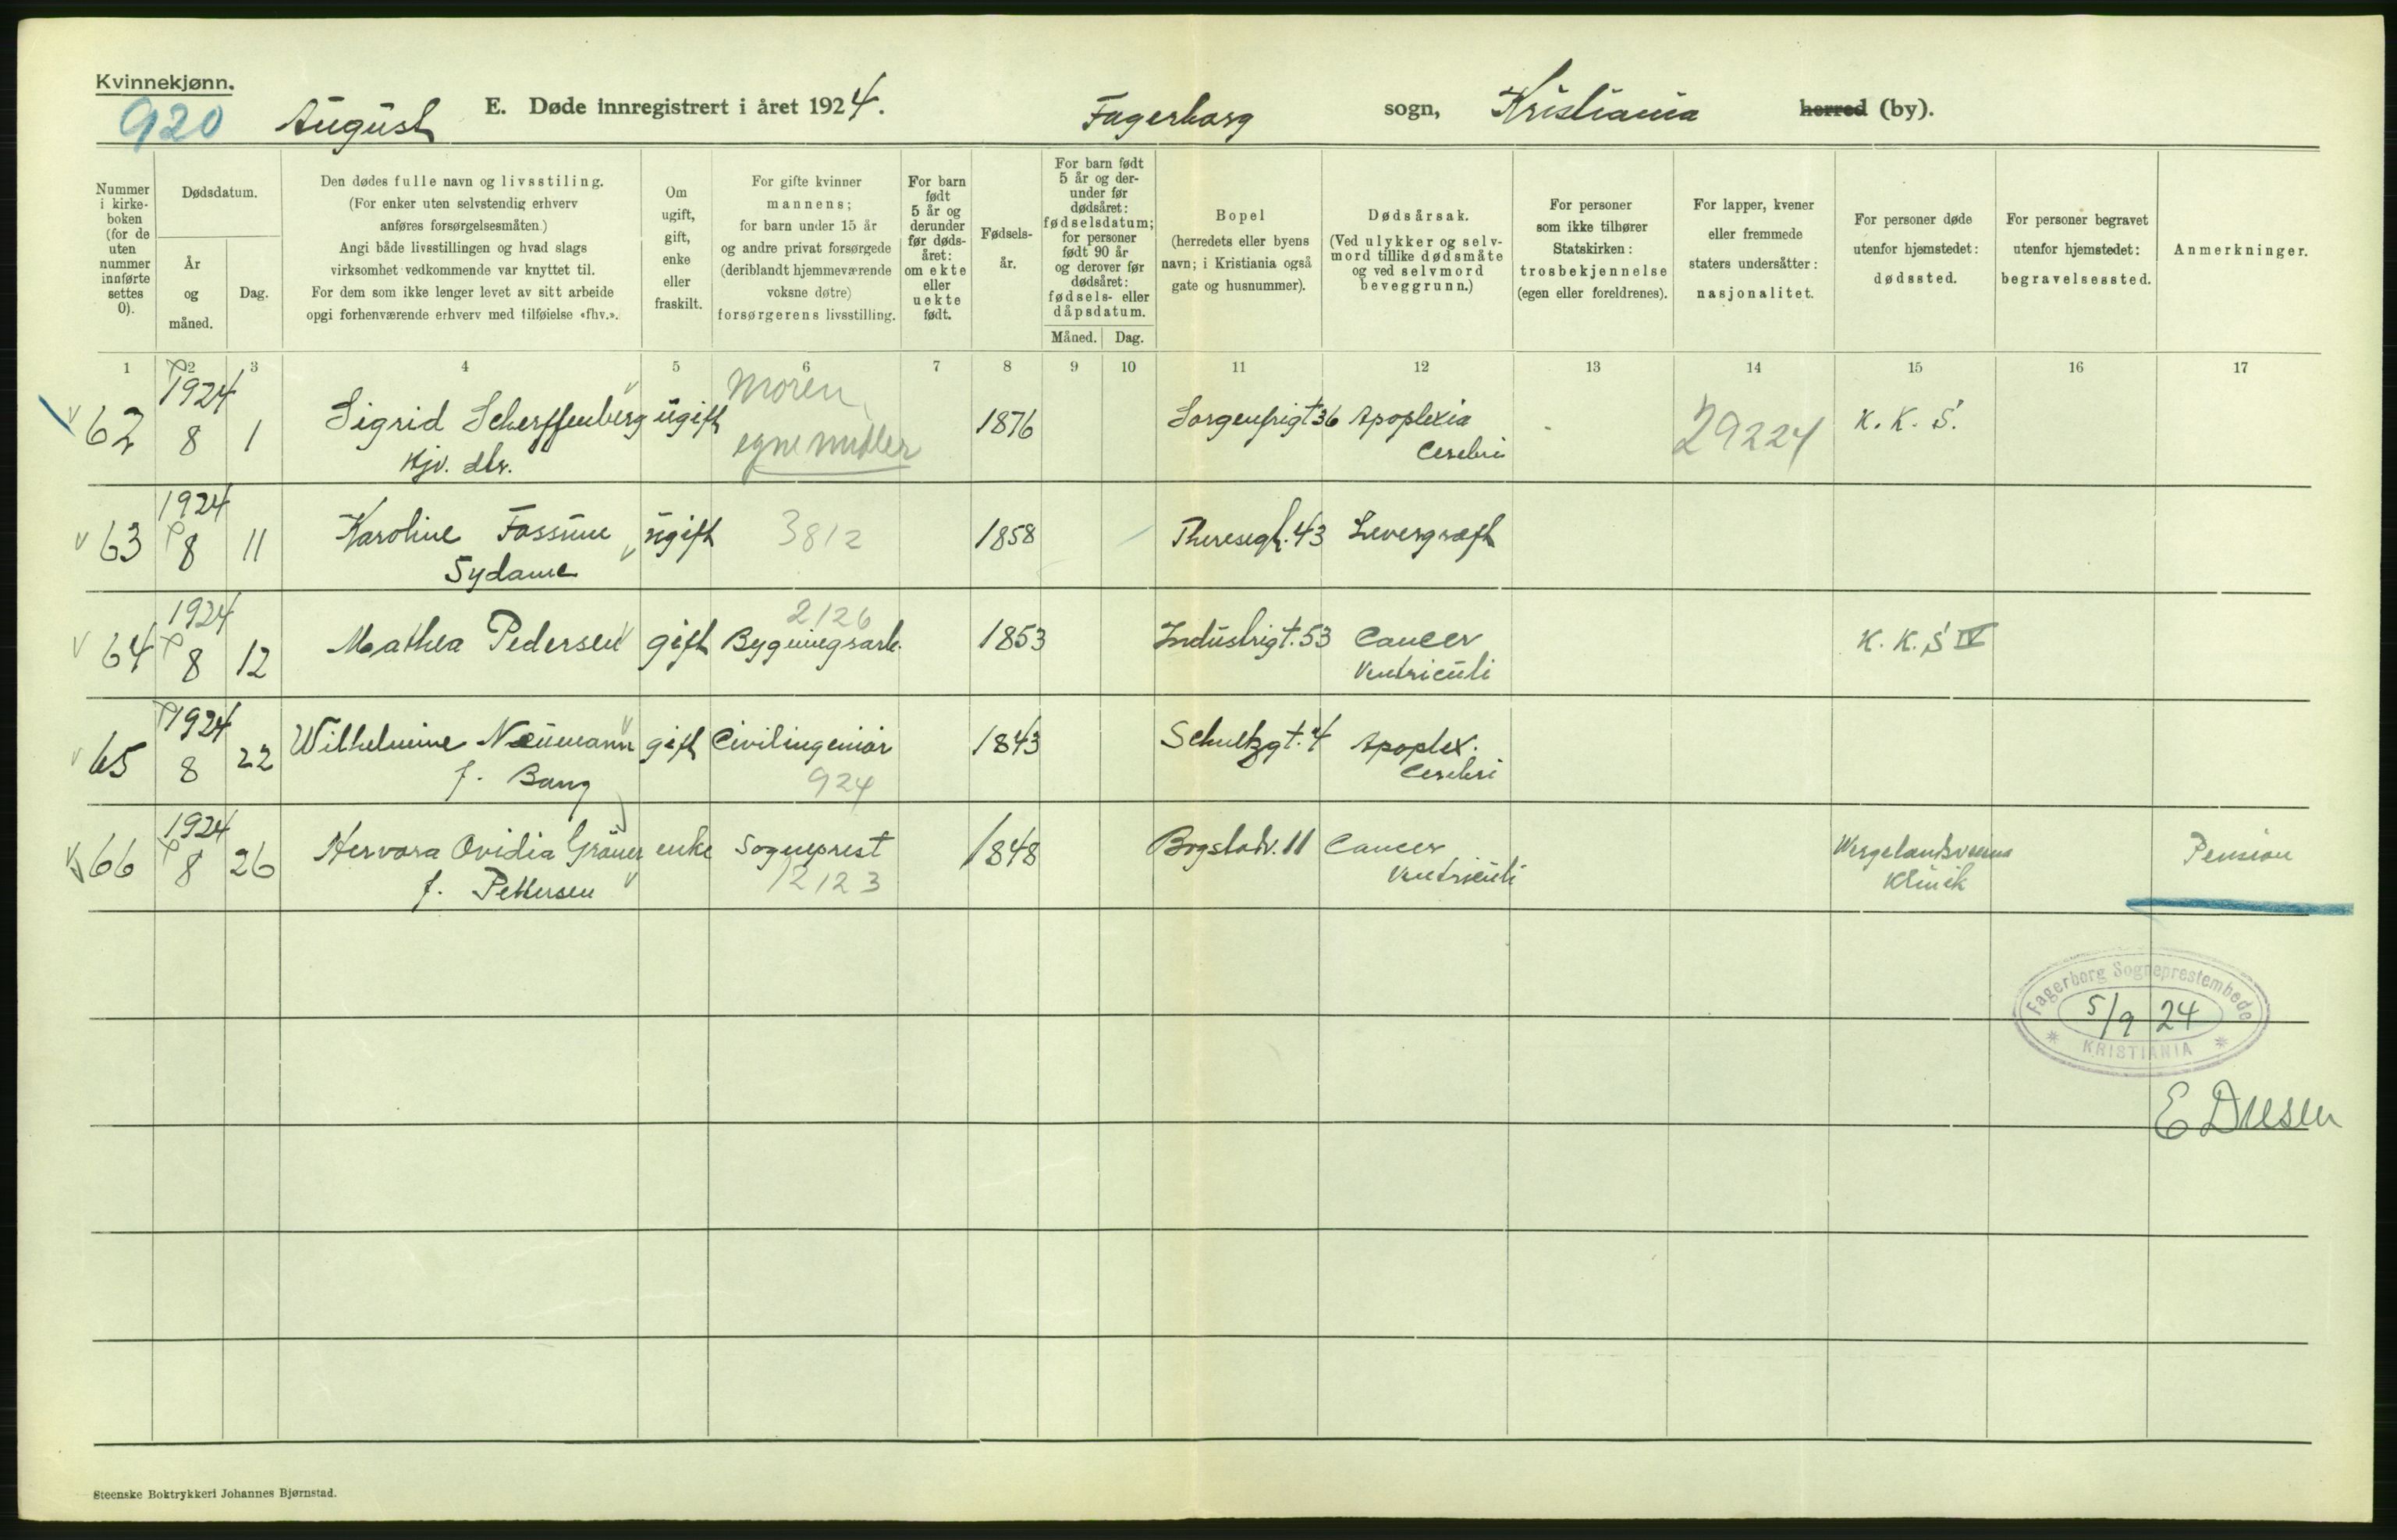 Kvinnekjønn.
920 August E. Døde innregistrert i året 1924. Fagerborg sogn, Kristiania herred (by).
Nummer i kirke-boken (for de uten nummer innførte settes 0).
Dødsdatum.
År og måned.
Dag.
Den dødes fulle navn og livsstiling.
(For enker uten selvstendig erhverv
anføres forsørgelsesmåten.)
Angi både livsstillingen og hvad slags
virksomhet vedkommende var knyttet til.
For dem som ikke lenger levet av sitt arbeide
opgi forhenværende erhverv med tilføielse «fhv.».
Om ugift, gift, enke eller fraskilt.
For gifte kvinner
mannens;
for barn under 15 år
og andre privat forsørgede
(deriblandt hjemmeværende
voksne døtre)
forsørgerens livsstilling.
For barn født 5 år og derunder før døds-året: om ekte eller uekte født.
Fødsels-år.
For barn født 5 år og der-under før dødsåret: fødselsdatum; for personer født 90 år og derover før dødsåret: fødsels- eller dåpsdatum.
Måned. Dag.
Bopel
(herredets eller byens
navn; i Kristiania også
gate og husnummer).
Dødsårsak.
(Ved ulykker og selv-
mord tillike dødsmåte
og ved selvmord
beveggrunn.)
For personer
som ikke tilhører
Statskirken:
trosbekjennelse
(egen eller foreldrenes).
For lapper, kvener
eller fremmede
staters undersåtter:
nasjonalitet.
For personer døde
utenfor hjemstedet:
dødssted.
For personer begravet
utenfor hjemstedet:
begravelsessted.
Anmerkninger.
1 2 3 4 5 6 7 8 9 10 11 12 13 14 15 16 17
1924 moren
62 8 1 Sigrid Scherffenberg ugift egne midler 1876 Sorgenfrigt 36 Apoplexia 29224 K. K. S.
Kjv. dtr. Cerebri
1924
63 8 11 Karoline Fossum ugift 3812 1858 Theresegt. 43 Leverkræft
Sydame
1924 2126
64 8 12 Mathea Pedersen gift Bygningsarb. 1853 Industrigt. 53 Cancer K. K. S IV
Ventriculi
1924
65 8 22 Wilhelmine Neumann gift Civilingeniör 1843 Schultzgt. 4 Apoplex.
f. Bang 924 Cerebri
1924
66 8 26 Hervora Ovidia Gräner enke Sogneprest 1848 Bogstadv. 11 Cancer Wergelandsveiens Pension
f. Pettersen 12123 Ventriculi Klinik
Fagerborg Sogneprestembede
5/9 24
KRISTIANIA
Steenske Boktrykkeri Johannes Bjørnstad.